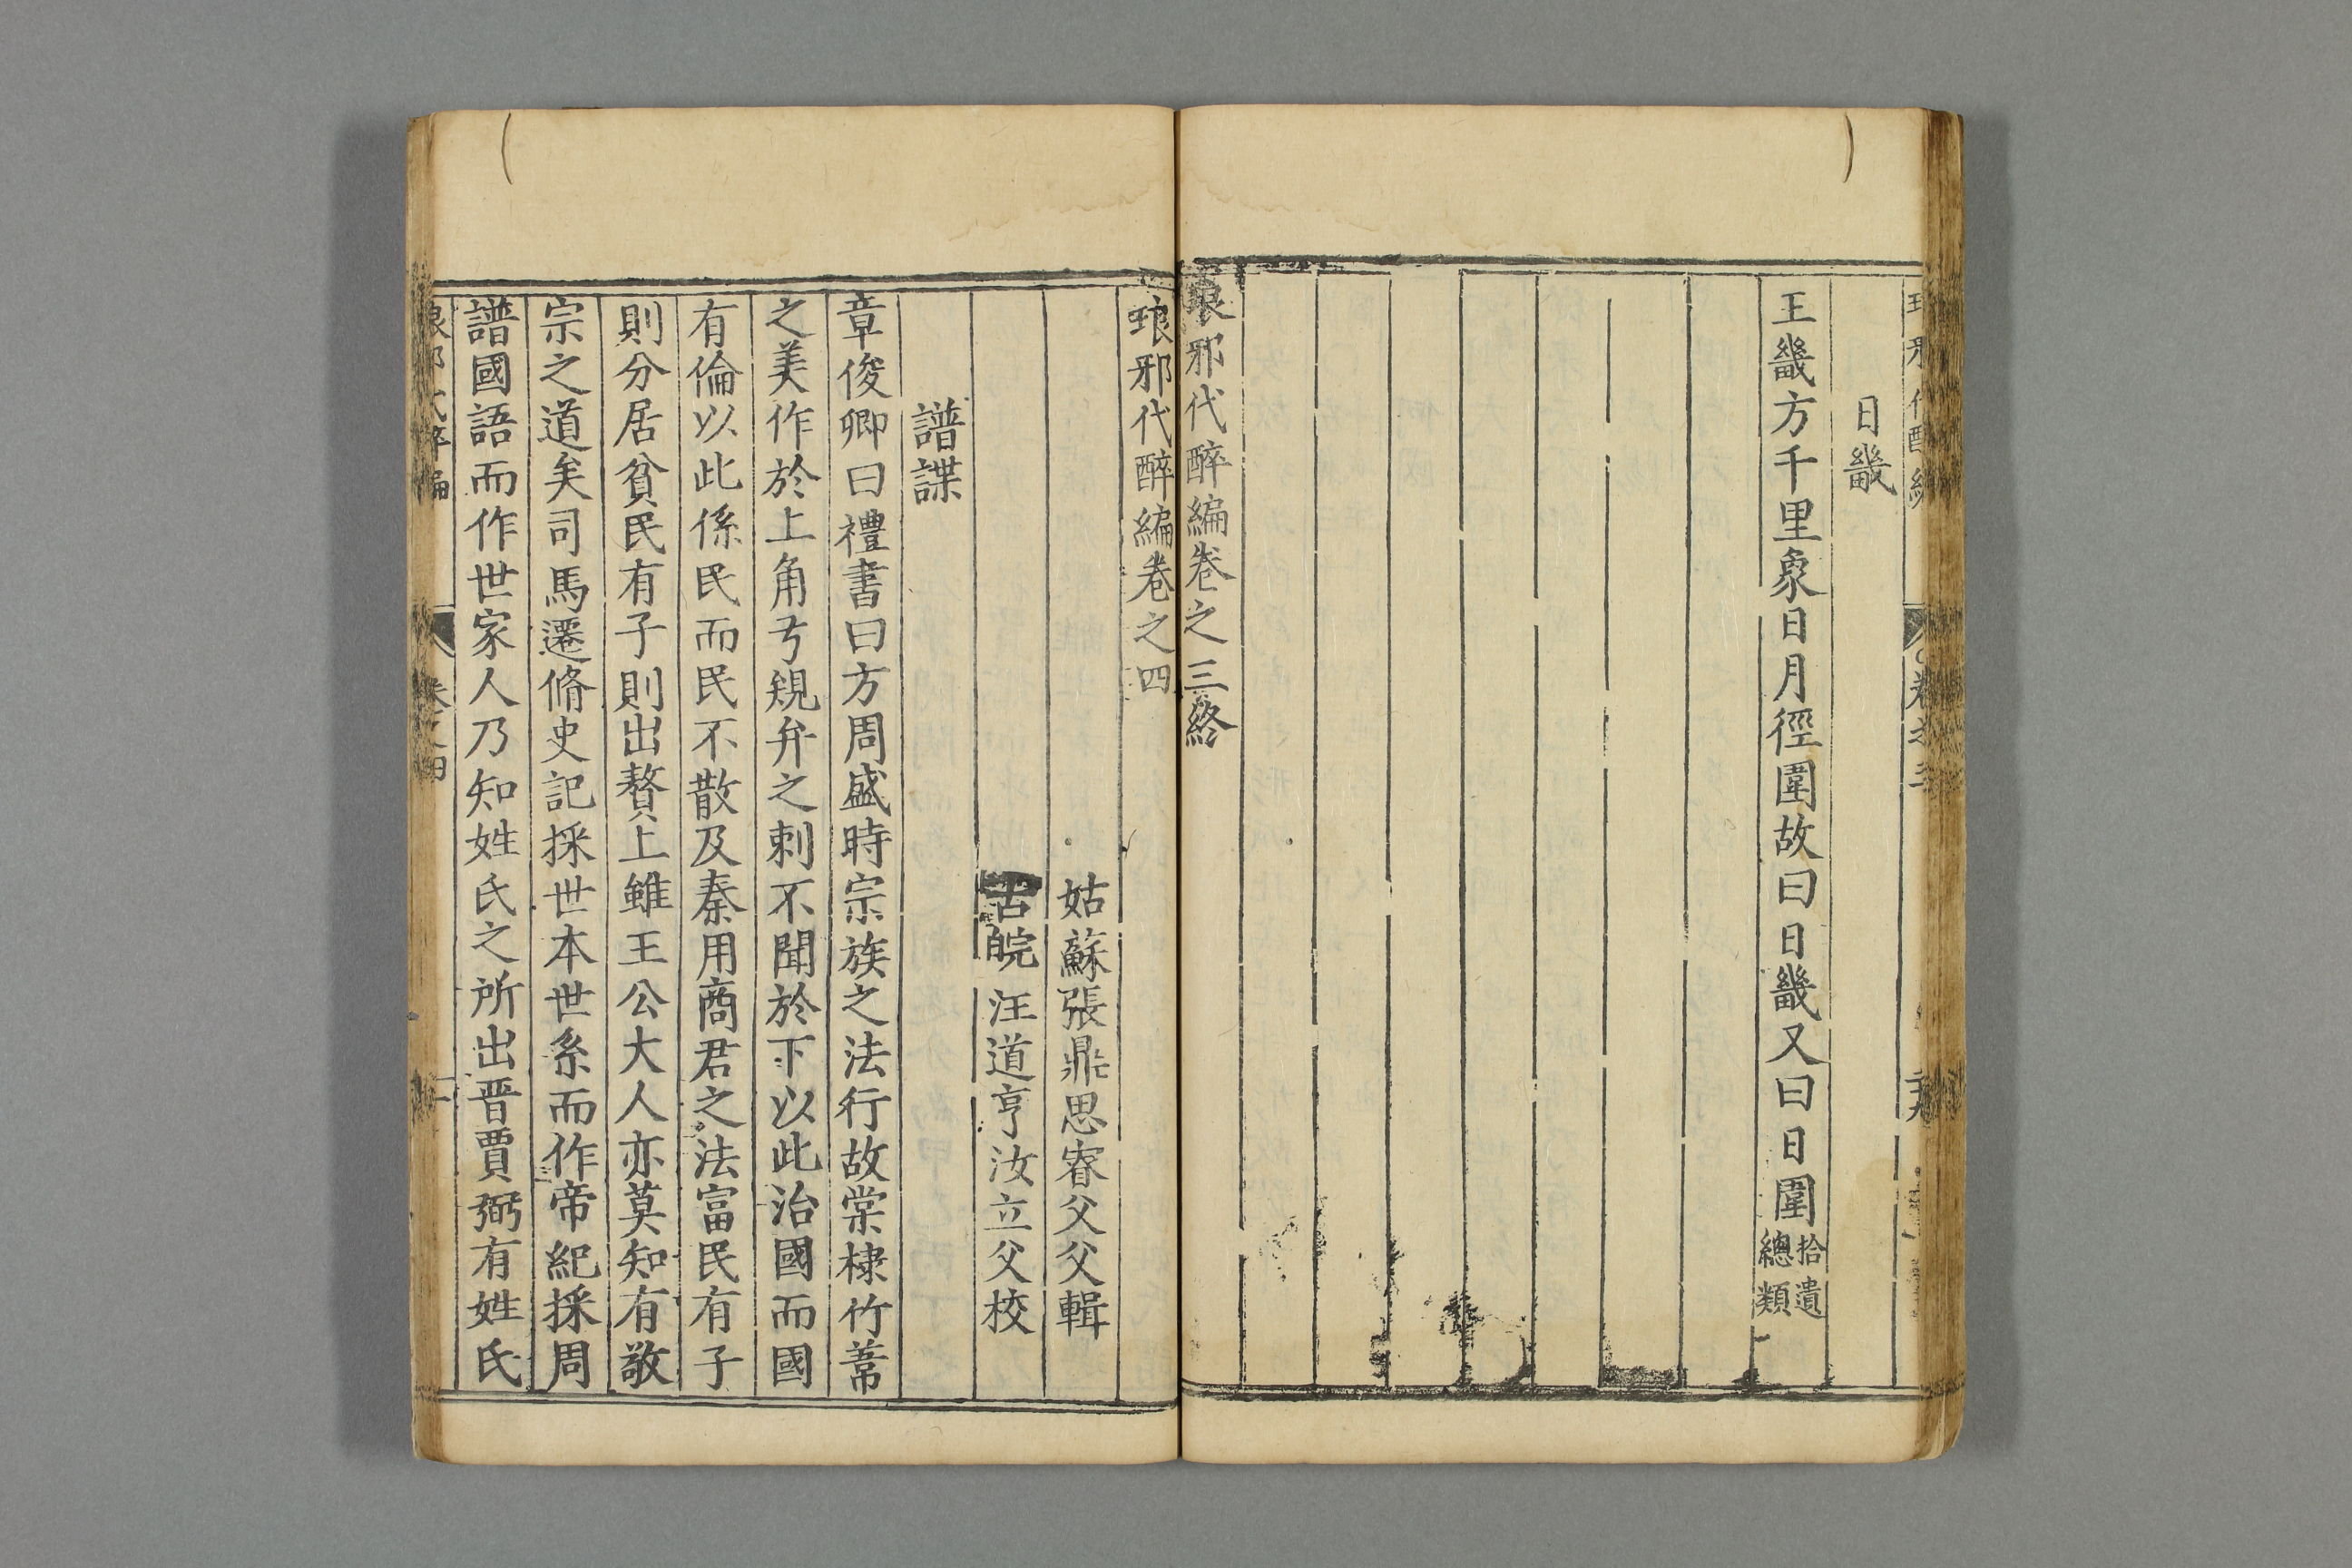 日畿
王畿方千里象日月徑圍故曰日畿又曰日圍拾遺總類
琅邪代醉編卷之三終
琅邪代醉編卷之四
姑蘇張鼎思睿父父輯
古皖汪道亨汝立父校
譜諜
章俊卿曰禮書曰方周盛時宗族之法行故棠棣竹葦
之美作於上角弓頍弁之刺不聞於下以此治國而國
有倫以此係民而民不散及秦用商君之法富民有子
則分居貧民有子則出贅上雖王公大人亦莫知有敬
宗之道矣司馬遷脩史記採世本世系而作帝紀採周
譜國語而作世家人乃知姓氏之所出晋賈弼有姓氏